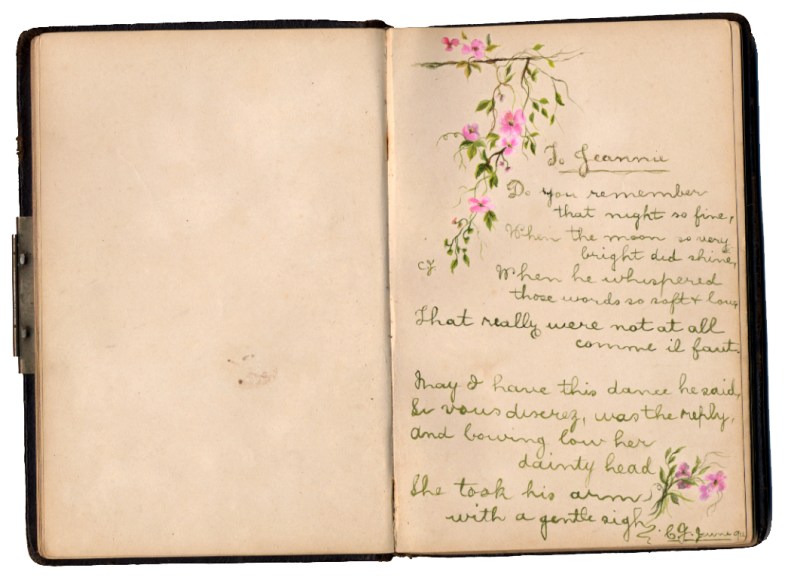 To Jeannie
Do you remember
that night so fine,
When the moon so very
bright did shine,
CJ
When he whispered
those words so soft & low,
That really were not at all
comme il faut.
May I have this dance he said,
Si vous discrez, was the reply,
And bowing low her
dainty head
She took his arm
with a gentle sigh
June